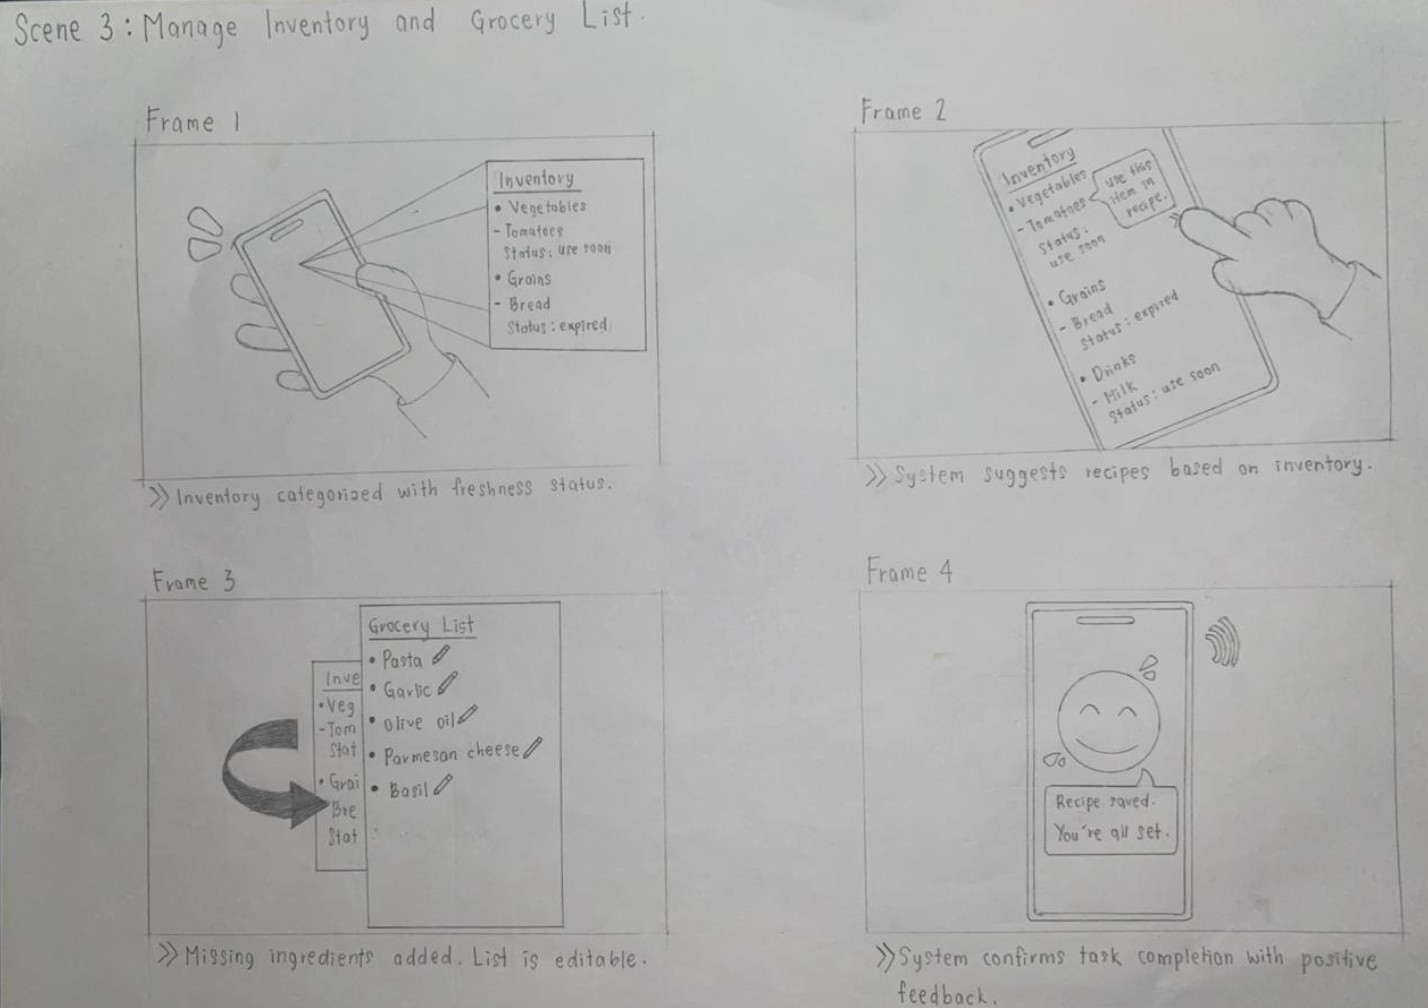 Scene 3: Manage Inventory and Grocery List.
Frame 1
Inventory
• Vegetables
- Tomatoes
Status: use soon
• Grains
- Bread
Status: expired
>> Inventory categorized with freshness status.
Frame 2
Inventory
• Vegetables
- Tomatoes
Status:
use soon
use this
item in
recipe.
• Grains
- Bread
Status: expired
• Drinks
- Milk
Status: use soon
>> System suggests recipes based on inventory.
Frame 3
Inve
• Veg
- Tom
Stat
• Grai
Bre
Stat
Grocery List
• Pasta
• Garlic
• Olive oil
• Parmesan cheese
• Basil
>> Missing ingredients added. List is editable.
Frame 4
Recipe saved.
You're all set.
>> System confirms task completion with positive
feedback.